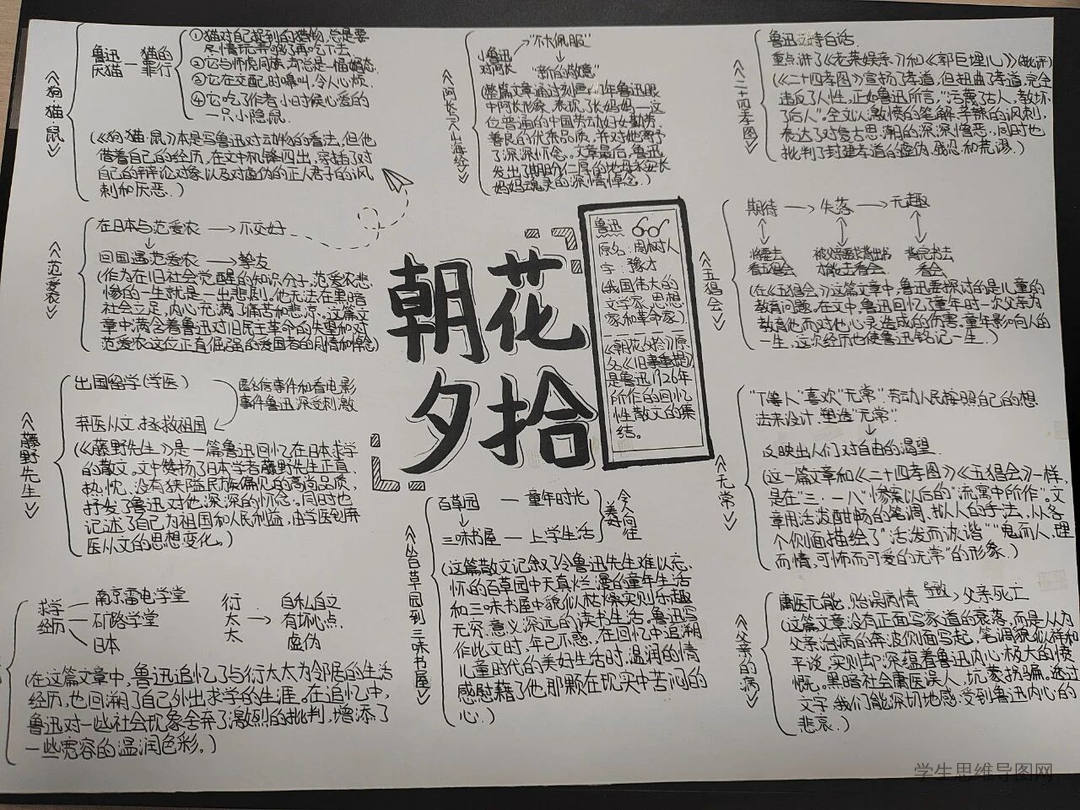 《狗·猫·鼠》
鲁迅 — 猫的
厌猫 罪行
①猫对自己捉到的猎物,总是要
尽情玩弄够了再吃下去
②它与师虎同族,却总是一幅媚态
③它在交配时嗥叫,令人心烦
④它吃了作者小时候心爱的
一只小隐鼠
(《狗·猫·鼠》本是写鲁迅对动物的看法,但他
借着自己的经历,在文中机锋四出,寄托了对
自己的辩论对象以及对虚伪的正人君子的讽
刺和厌恶.)
《范爱农》
在日本与范爱农 → 不交好
回国遇范爱农 → 挚友
(作为在旧社会觉醒的知识分子,范爱农悲
惨的一生就是一出悲剧,他无法在黑暗
社会立足,内心充满了痛苦和悲凉。这篇文
章中满含着鲁迅对旧民主革命的失望和对
范爱农这位正直倔强的爱国者的同情和悼念)
《藤野先生》
出国留学(学医)
匿名信事件和看电影
事件鲁迅深受刺激
弃医从文,拯救祖国
(《藤野先生》是一篇鲁迅回忆在日本求学
的散文。文中赞扬了日本学者藤野先生正直、
热忱、没有狭隘民族偏见的高尚品质,
抒发了鲁迅对他深深的怀念。同时也
记述了自己为祖国和人民利益,由学医到弃
医从文的思想变化。)
求学
经历
南京雷电学堂
矿路学堂
日本
衍
太
太
自私自文
有坏心点
虚伪
(在这篇文章中,鲁迅追忆了与衍太太为邻居的生活
经历,也回溯了自己外出求学的生涯。在追忆中,
鲁迅对一些社会现象舍弃了激烈的批判,增添了
一些宽容的温润色彩。)
《阿长与《山海经》》
小鲁迅
对阿长
"不大佩服"
"新的敬意"
(整篇文章通过刻画幼年鲁迅眼
中阿长形象,表现了长妈妈——这
位普通的中国劳动妇女勤劳
善良的优秀品质,并对他寄予
了深深怀念。文章最后,鲁迅
发出了期盼仁厚的地母永安长
妈妈魂灵的深情悼念.)
朝花
夕拾
鲁迅
原名:周树人
字:豫才
(我国伟大的
文学家、思想
家和革命家)
《朝花夕拾》原
名《旧事重提》
是鲁迅1926年
所作的回忆
性散文的集
结。
《从百草园到三味书屋》
百草园 — 童年时光
三味书屋 — 上学生活
令人
羡向
慕往
(这篇散文记叙了令鲁迅先生难以忘
怀的百草园中天真烂漫的童年生活
和三味书屋中貌似枯燥实则乐趣
无穷、意义深远的读书生活。鲁迅写
作此文时,年已不惑,在回忆中追溯
儿童时代的美好生活时,温润的情
感慰藉了他,那颗在现实中苦闷的
心.)
《二十四孝图》
鲁迅支持白话
重点讲了《老莱娱亲》《郭巨埋儿》(批评)
(《二十四孝图》宣扬了孝道,但扭曲了孝道,完全
违反了人性,正如鲁迅所言,"污蔑了古人,教坏
了后人"。全文以激愤的笔触、辛辣的风刺,
表达了对复古思潮的深深憎恶,同时也
批判了封建孝道的虚伪、残忍和荒谬.)
《五猖会》
期待 → 失落 → 无趣
将要去
看五猖会
被父亲要求背出书
才能去看会
背完书去
看会
(在《五猖会》这篇文章中,鲁迅要探讨的是儿童的
教育问题。在文中,鲁迅回忆了童年时一次父亲为
教育他而对他心灵造成的伤害。童年影响人的
一生,这次经历也使鲁迅铭记一生.)
《无常》
"下等人"喜欢"无常",劳动人民按照自己的想
法来设计、塑造"无常"
反映出人们对自由的渴望
(这一篇文章和《二十四孝图》《五猖会》一样,
是在"三·一八"惨案以后的"流寓中所作"。文
章用活泼酣畅的笔调、拟人的手法,从各
个侧面描绘了"活发而诙谐""鬼而人,理
而情,可怖而可爱的无常"的形象.)
《父亲的病》
庸医无能,贻误病情 导致→ 父亲死亡
(这篇文章没有正面写家道的衰落,而是从为
父亲治病的奔波侧面写起,笔调貌似祥和
平淡,实则却深蕴着鲁迅内心极大的愤
慨。黑暗社会庸医误人、坑蒙拐骗。透过
文字,我们能深切地感受到鲁迅内心的
悲哀.)
学生思维导图网